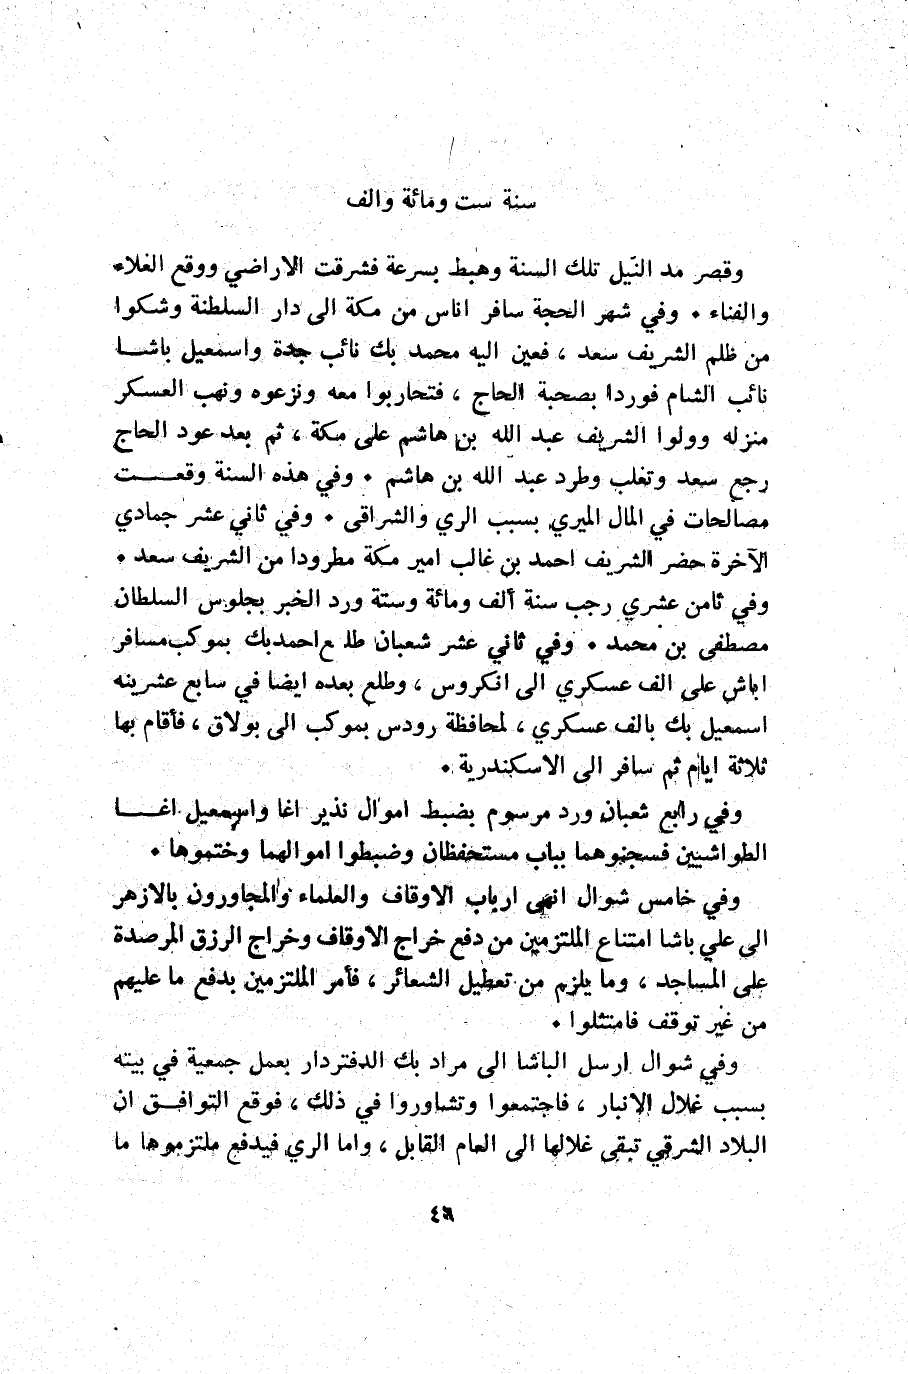 سنة ست ومائة والف
وقصر مد النيل تلك السنة وهبط بسرعة فشرقت الاراضي ووقع الغلاء
والفناء • وفي شهر الحجة سافر اناس من مكة الى دار السلطنة وشكوا
من ظلم الشريف سعد ، فعين اليه محمد بك نائب جدة واسمعيل باشا
نائب الشام فوردا بصحبة الحاج ، فتحاربوا معه ونزعوه ونهب العسكر
منزله وولوا الشريف عبد الله بن هاشم على مكة ، ثم بعد عود الحاج
رجع سعد وتغلب وطرد عبد الله بن هاشم • وفي هذه السنة وقعت
مصالحات في المال الميري بسبب الري والشراقى • وفي ثاني عشر جمادي
الآخرة حضر الشريف احمد بن غالب امير مكة مطرودا من الشريف سعد •
وفي ثامن عشري رجب سنة ألف ومائة وستة ورد الخبر بجلوس السلطان
مصطفى بن محمد • وفي ثاني عشر شعبان طلع احمد بك بموكب مسافر
اباش على الف عسكري الى انكروس ، وطلع بعده ايضا في سابع عشرينه
اسمعيل بك بالف عسكري ، لمحافظة رودس بموكب الى بولاق ، فأقام بها
ثلاثة ايام ثم سافر الى الاسكندرية •
وفي رابع شعبان ورد مرسوم بضبط اموال نذير اغا واسمعيل اغا
الطواشيين فسجنوهما بباب مستحفظان وضبطوا اموالهما وختموها •
وفي خامس شوال انهى ارباب الاوقاف والعلماء والمجاورون بالازهر
الى علي باشا امتناع الملتزمين من دفع خراج الاوقاف وخراج الرزق المرصدة
على المساجد ، وما يلزم من تعطيل الشعائر ، فأمر الملتزمين بدفع ما عليهم
من غير توقف فامتثلوا •
وفي شوال ارسل الباشا الى مراد بك الدفتردار بعمل جمعية في بيته
بسبب غلال الانبار ، فاجتمعوا وتشاوروا في ذلك ، فوقع التوافق ان
البلاد الشرقي تبقى غلالها الى العام القابل ، واما الري فيدفع ملتزموها ما
٤٦